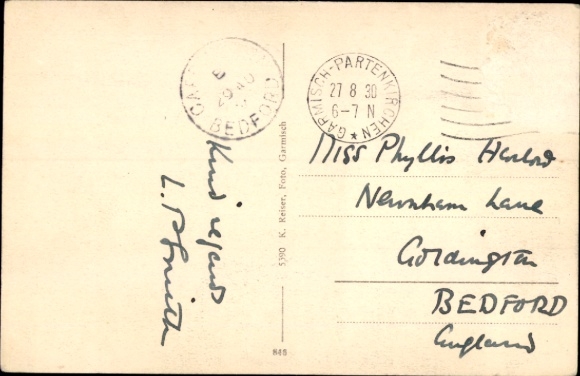 Kind regards
L. P. Smith
BEDFORD
5390 K. Reiser, Foto, Garmisch
846
GARMISCH-PARTENKIRCHEN
27 8 30
6-7 N
Miss Phyllis
Newnham Lane
Goldington
BEDFORD
England